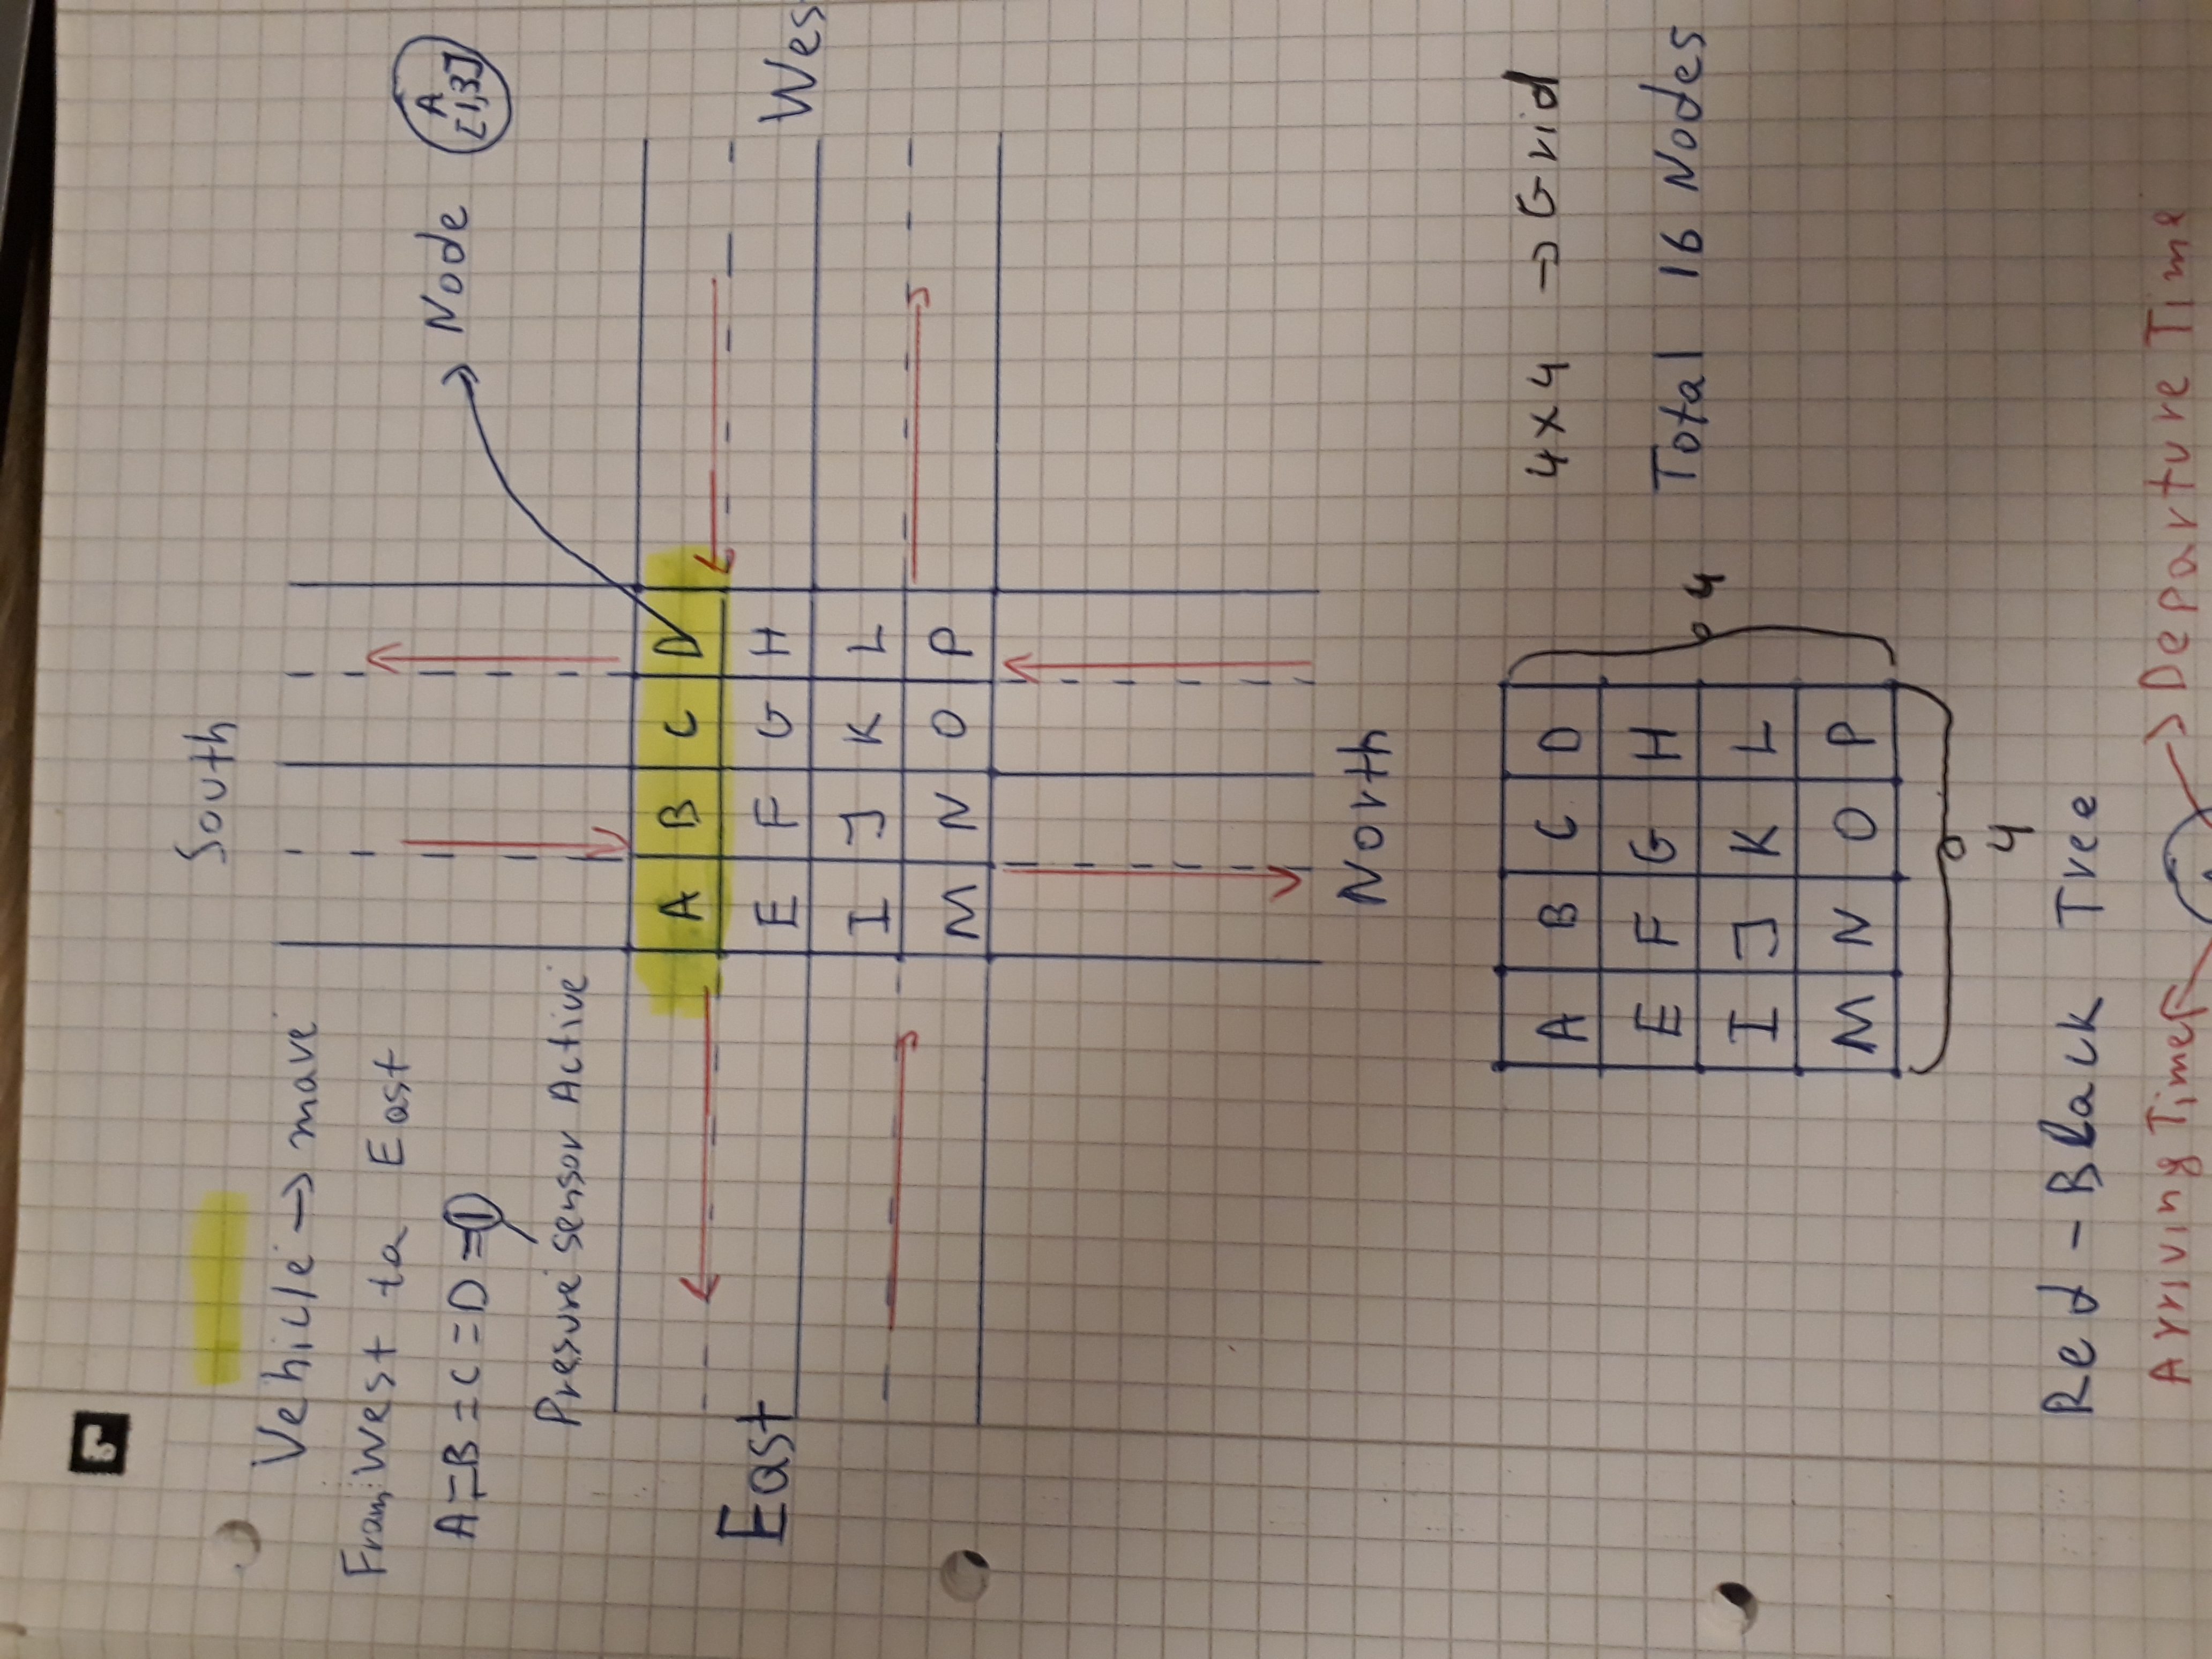 South
Vehicle → move
From West to East
A=B=C=D=1
Presure sensor Active
Node
A
[1,3]
A B C D
E F G H
I J K L
M N O P
East
Wes
North
A B C D
E F G H
I J K L
M N O P
4
4
4x4 → Grid
Total 16 Nodes
Red-Black Tree
Arriving Time
Departure Time